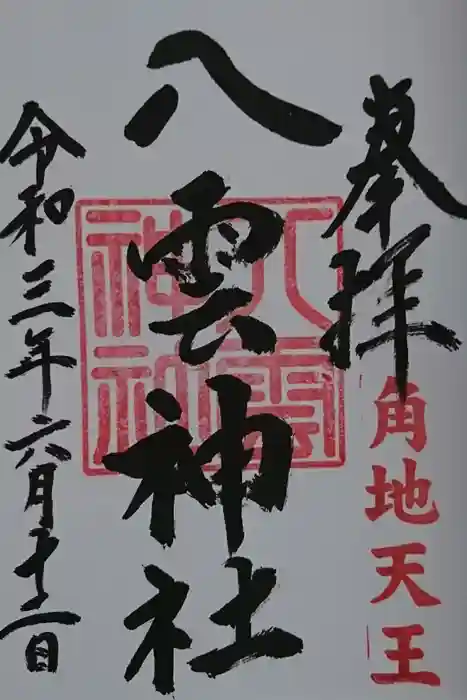 奉拝
角地天王
八雲神社
八雲神社
令和三年六月十二日